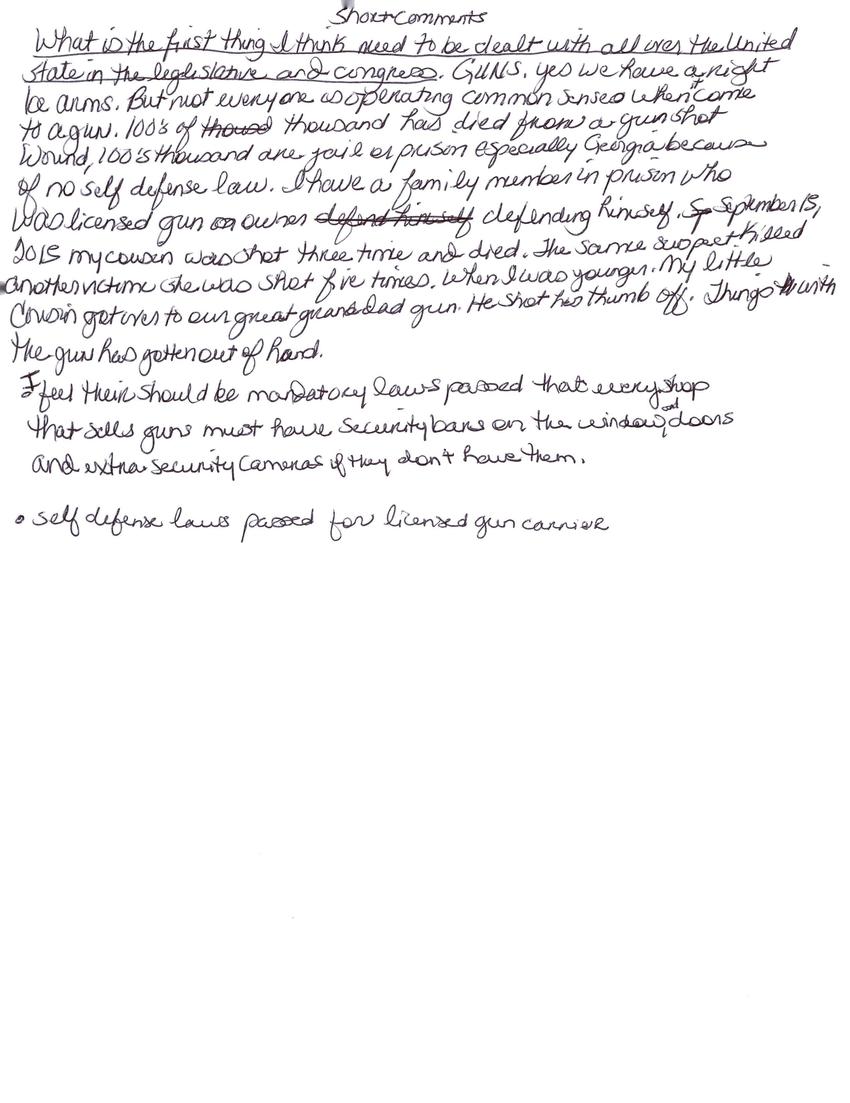 Short Comments
What is the first thing I think need to be dealt with all over the United
State in the legislative and congress. GUNS. yes we have a right
be arms. But not everyone is operating common senses when it come
to a gun. 100's of thousand has died from a gun shot
Wound, 100's thousand are jail or prison especially Georgia because
of no self defense law. I have a family member in prison who
was licensed gun owner defending himself. September 15,
2015 my cousin was shot three time and died. The same suspect killed
another victim she was shot five times. When I was younger. My little
Cousin got over to our great granddad gun. He shot his thumb off. Things with
the gun has gotten out of hand.
I feel their should be mandatory laws passed that every shop
that sells guns must have security bars on the window, and doors
and extra security cameras if they don't have them.
• self defense laws passed for licensed gun carrier